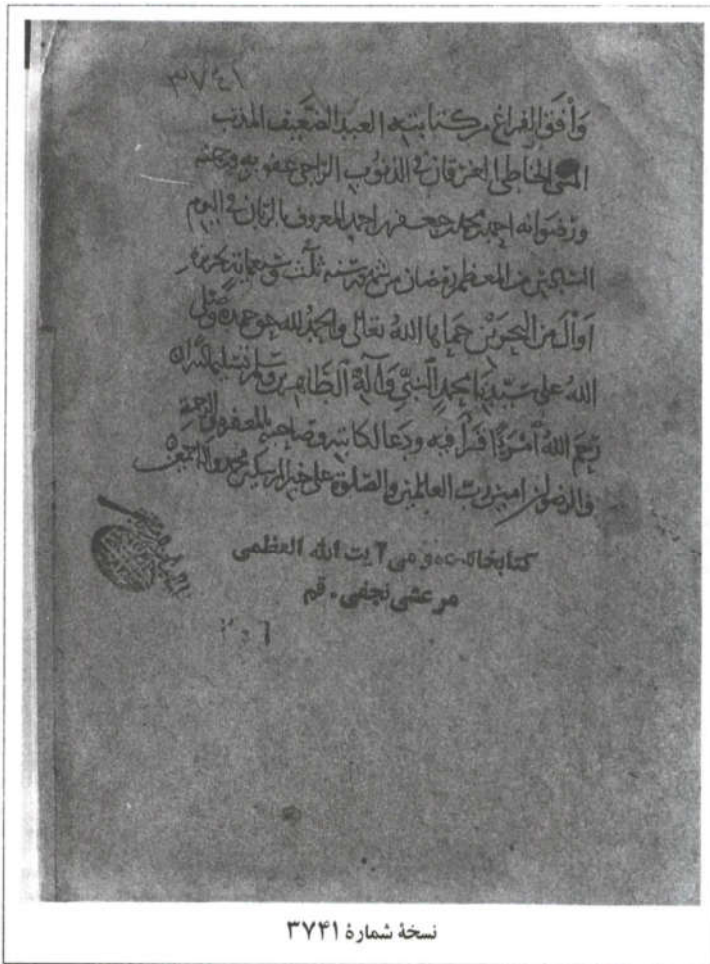 ٣٧٤١
وأفق الفراغ من كتابته العبد الضعيف المذنب
الخاطئ الغرقان في الذنوب الراجي عفو ربه ورحمته
ورضوانه احمد بن محمد بن جعفر بن احمد المعروف في اليوم
من المعظم رمضان من سنة ثلث وسبعمائة بجزيرة
أوال من البحرين حماها الله تعالى والحمد لله حق حمده وصلى
الله على سيدنا محمد النبي وآله الطاهرين وسلم تسليما
رحم الله امرءا قرأ فيه ودعا لكاتبه وصاحبه بالمغفرة والرحمة
والرضوان امين رب العالمين والصلوة على خير المرسلين محمد وآله اجمعين
كتابخانه عمومی آیت الله العظمی
مرعشی نجفی - قم
نسخهٔ شمارهٔ ۳۷۴۱